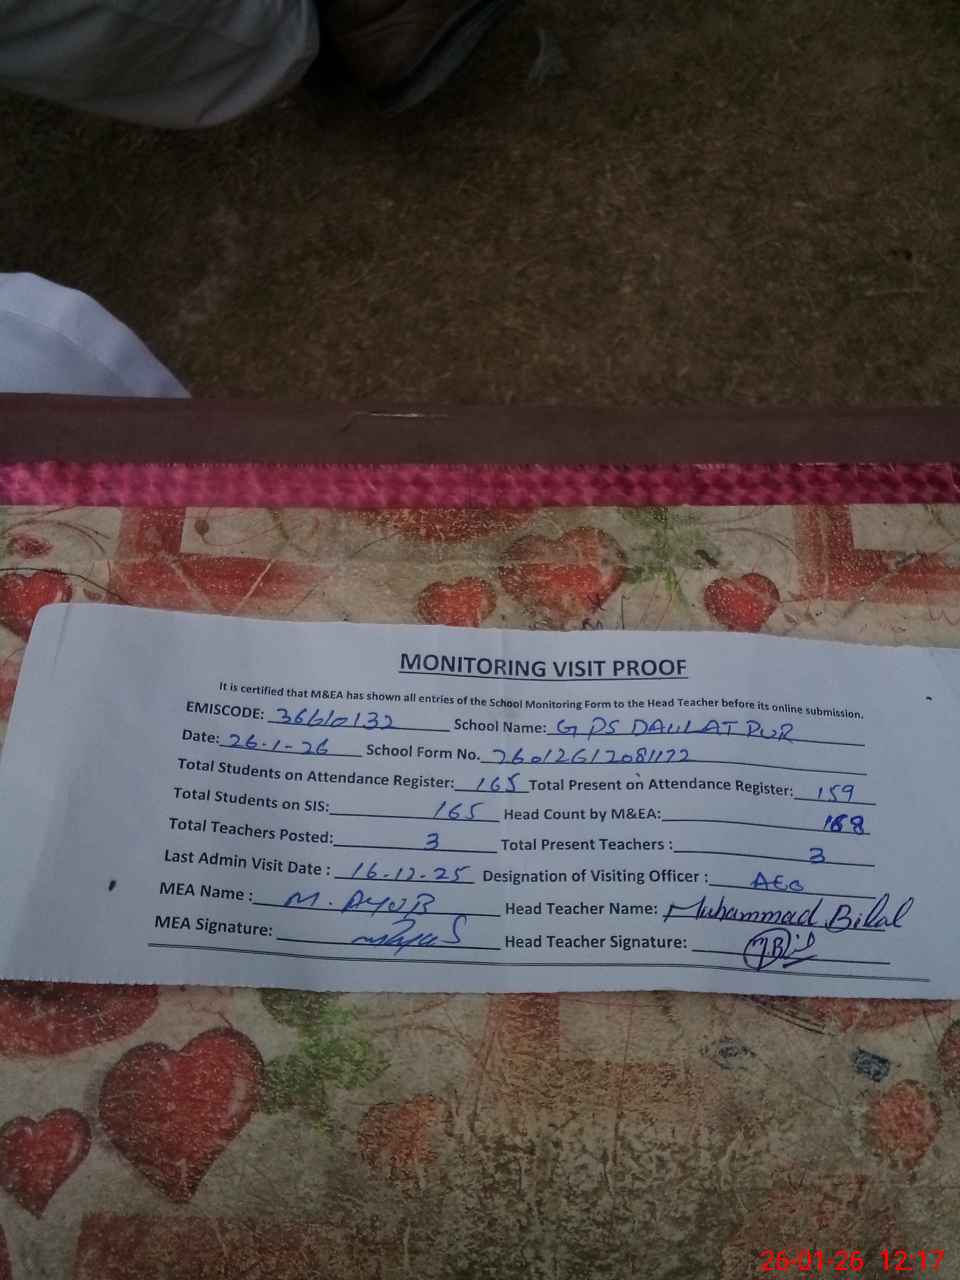 MONITORING VISIT PROOF
It is certified that M&EA has shown all entries of the School Monitoring Form to the Head Teacher before its online submission.
EMISCODE: 36610132 School Name: G PS DAULAT PUR
Date: 26-1-26 School Form No. 26012612081172
Total Students on Attendance Register: 165 Total Present on Attendance Register: 159
Total Students on SIS: 165 Head Count by M&EA:
Total Teachers Posted: 3 Total Present Teachers : 3
Last Admin Visit Date : 16-12-25 Designation of Visiting Officer : AEO
MEA Name : M. AYUB Head Teacher Name: Muhammad Bilal
MEA Signature: Head Teacher Signature:
26-01-26 12:17